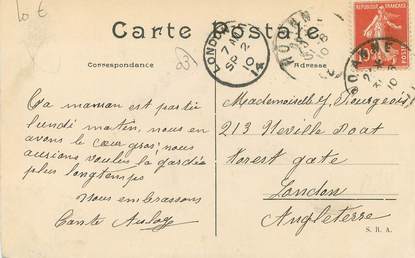 10 €
Carte Postale
Correspondance
Adresse
LONDON
7 AM
SP 2
10
ROANNE
31-8
10
REPUBLIQUE FRANÇAISE
10
POSTES
Ta maman est partie
lundi matin, nous en
avons le cœur gros; nous
aurions voulu la garder
plus longtemps
Nous embrassons
Tante
Mademoiselle Y. Bourgeois
213 Neville Road
Forest gate
London
Angleterre
S. R. A.